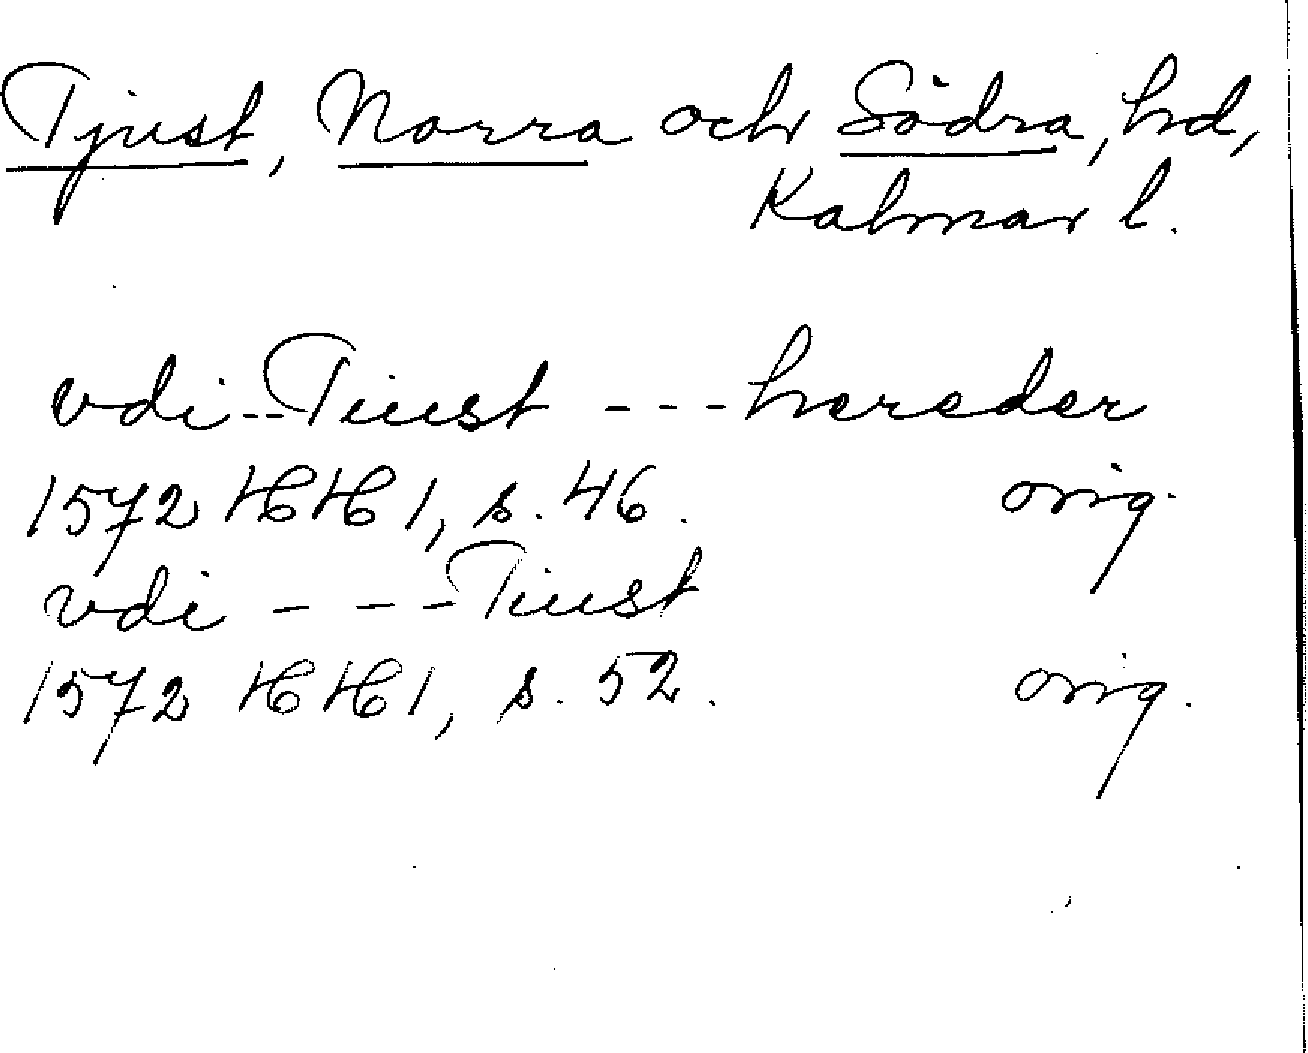 Tjust, Norra och Södra, hd,
Kalmar l.
vdi -- Tiust --- hereder
1572 HH 1, s. 46. orig.
vdi --- Tiust
1572 HH 1, s. 52. orig.